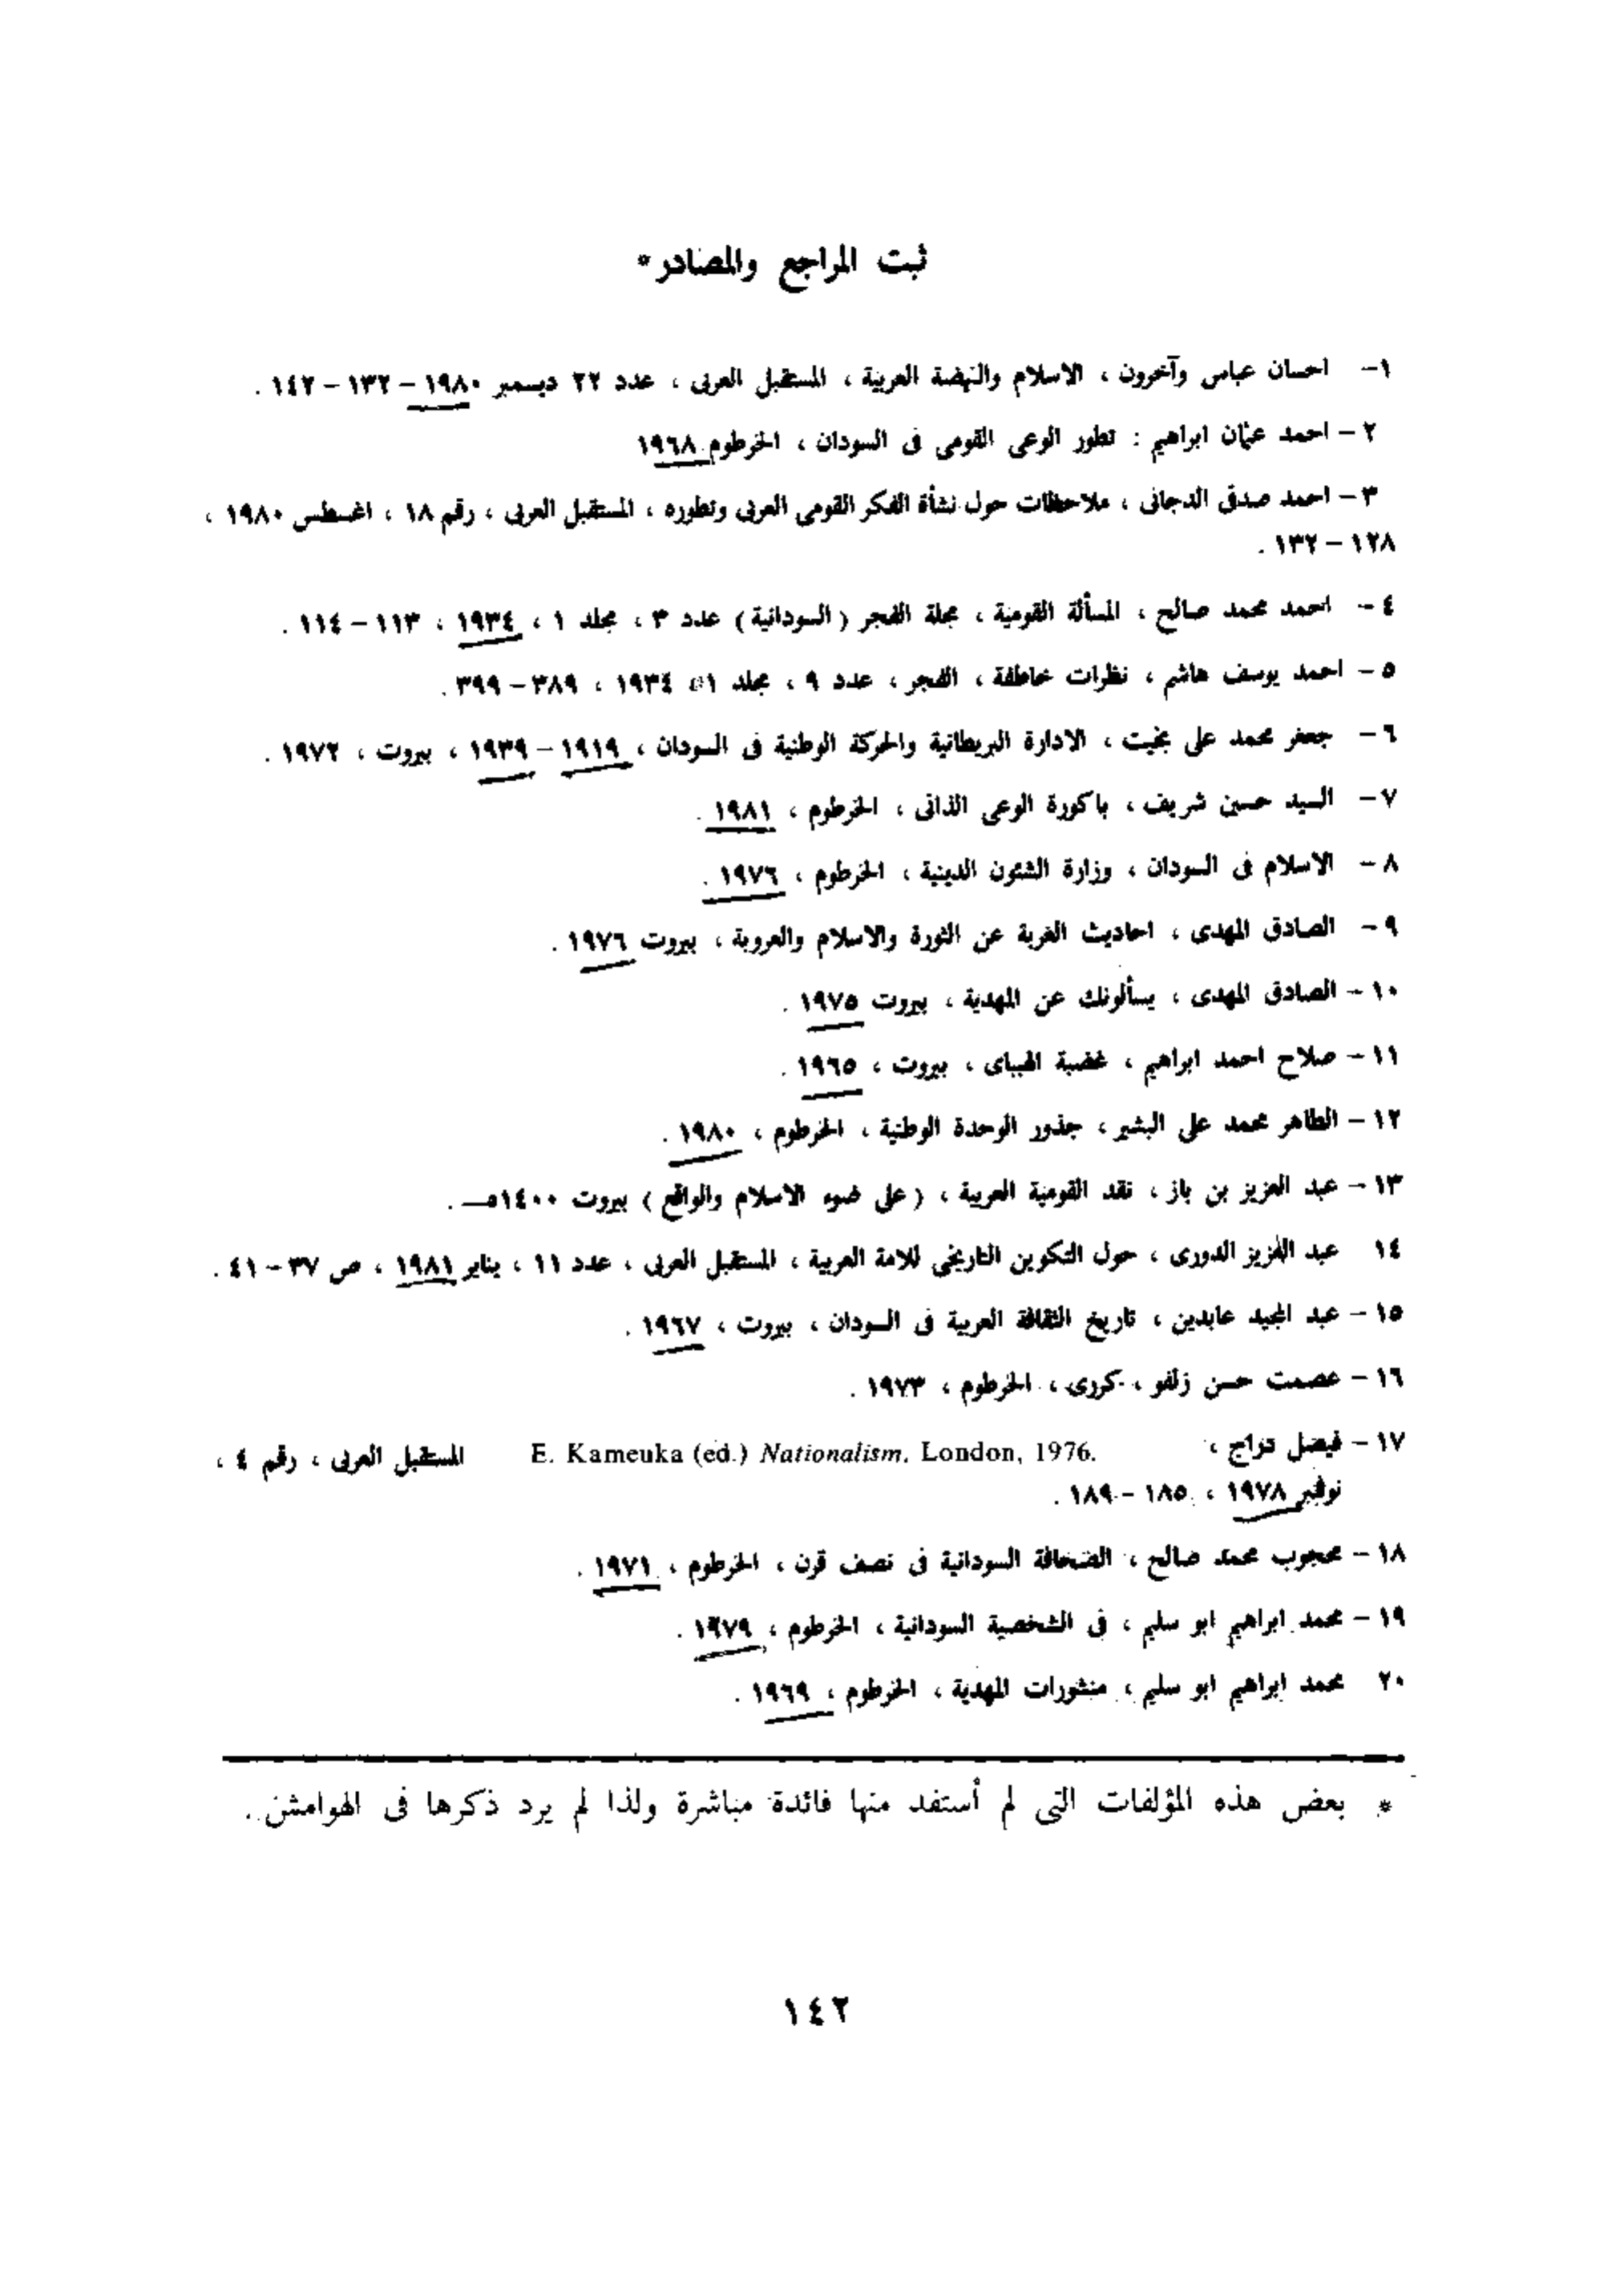 ثبت المراجع والمصادر*
١- احسان عباس وآخرون ، الاسلام والنهضة العربية ، المستقبل العربى ، عدد ٢٢ ديسمبر ١٩٨٠ – ١٣٢ – ١٤٢ .
٢ – احمد عثمان ابراهيم : تطور الوعى القومى فى السودان ، الخرطوم ١٩٦٨
٣ – احمد صدقى الدجانى ، ملاحظات حول نشأة الفكر القومى العربى وتطوره ، المستقبل العربى ، رقم ١٨ ، اغسطس ١٩٨٠ ،
١٢٨ – ١٣٢ .
٤ – احمد محمد صالح ، المسألة القومية ، مجلة الفجر ( السودانية ) عدد ٣ ، مجلد ١ ، ١٩٣٤ ، ١١٣ – ١١٤ .
٥ – احمد يوسف هاشم ، نظرات خاطفة ، الفجر ، عدد ٩ ، مجلد ١ ١٩٣٤ ، ٣٨٩ – ٣٩٩ .
٦ – جعفر محمد على بخيت ، الادارة البريطانية والحركة الوطنية فى السودان ، ١٩١٩ – ١٩٣٩ ، بيروت ، ١٩٧٢ .
٧ – السيد حسين شريف ، باكورة الوعى الذاتى ، الخرطوم ، ١٩٨١ .
٨ – الاسلام فى السودان ، وزارة الشئون الدينية ، الخرطوم ، ١٩٧٦ .
٩ – الصادق المهدى ، احاديث الغربة عن الثورة والاسلام والعروبة ، بيروت ١٩٧٦ .
١٠ – الصادق المهدى ، يسألونك عن المهدية ، بيروت ١٩٧٥ .
١١ – صلاح احمد ابراهيم ، غضبة الهبباى ، بيروت ، ١٩٦٥ .
١٢ – الطاهر محمد على البشير ، جذور الوحدة الوطنية ، الخرطوم ، ١٩٨٠ .
١٣ – عبد العزيز بن باز ، نقد القومية العربية ، ( على ضوء الاسلام والواقع ) بيروت ١٤٠٠هـ .
١٤ عبد العزيز الدورى ، حول التكوين التاريخى للامة العربية ، المستقبل العربى ، عدد ١١ ، يناير ١٩٨١ ، ص ٣٧ – ٤١ .
١٥ – عبد المجيد عابدين ، تاريخ الثقافة العربية فى السودان ، بيروت ، ١٩٦٧ .
١٦ – عصمت حسن زلفو ، كررى ، الخرطوم ، ١٩٧٣ .
١٧ – فيصل دراج ، E. Kameuka (ed.) Nationalism. London, 1976. المستقبل العربى ، رقم ٤ ،
نوفمبر ١٩٧٨ ، ١٨٥ – ١٨٩ .
١٨ – محجوب محمد صالح ، الصحافة السودانية فى نصف قرن ، الخرطوم ، ١٩٧١ .
١٩ – محمد ابراهيم ابو سليم ، فى الشخصية السودانية ، الخرطوم ، ١٩٧٩ .
٢٠ محمد ابراهيم ابو سليم ، منشورات المهدية ، الخرطوم ، ١٩٦٩ .
* بعض هذه المؤلفات التى لم أستفد منها فائدة مباشرة ولذا لم يرد ذكرها فى الهوامش .
١٤٢